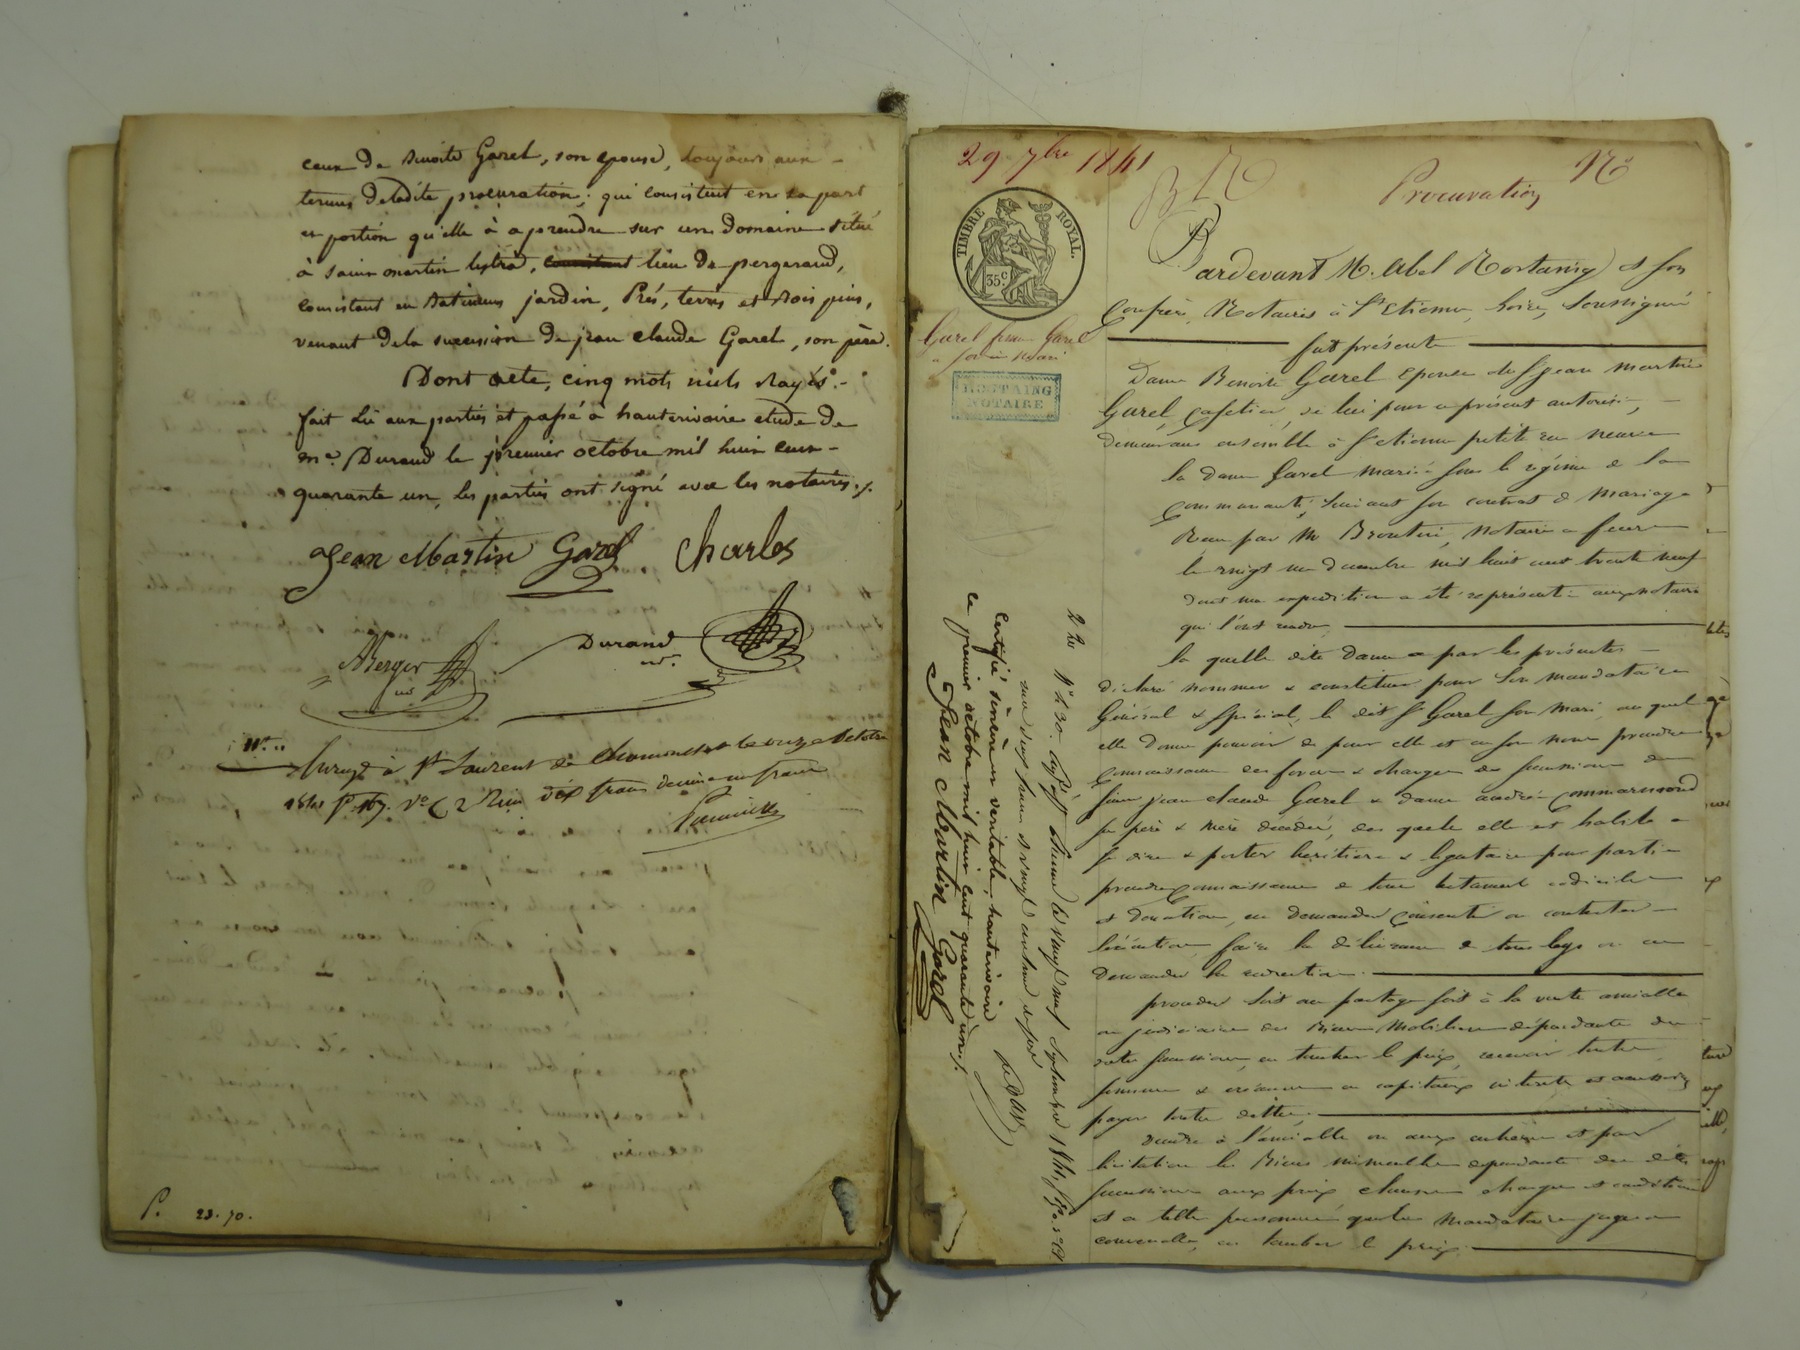 ceux de Benoite Garel, son epouse, toujours aux
termes de ladite procuration, qui consistent en sa part
et portion qu'elle à a prendre sur un domaine situé
à saint martin lestrà, consistant lieu de pergeraud,
consistant en Batimens jardin, Prés, terres et Bois pins,
venant dela succession de jean claude Garel, son père.
Dont acte, cinq mots nuls rayés.-
fait Lû aux parties et passé à hauterivoire etude de
me. Durand le premier octobre mil huit cent-
quarante un, les parties ont signé avec les notaires./.
Jean Martin Garel. Charles
ABerger
nre
Durand
nre.
Enregé à St Laurent de Chamousset le onze octobre
1841 fo. 167. Vo. C 2 Reçu dix francs decime un franc
P. 23.70.
29 7bre 1841
Procuration
No
TIMBRE ROYAL.
35 c
Garel femme Garel
à son mari
ROSTAING
NOTAIRE
Pardevant M. Abel Rostaing et son
Confrère, Notaires à St Etienne, Loire, Soussignés
fut présente
Dame Benoite Garel epouse de Sr jean martin
Garel, cafetier, de lui pour ce présent autorisée,
demeurans ensemble à St etienne petite rue neuve
la dame Garel mariée sous le régime de la
communauté, suivant son contrat de mariage
Reçu par Me Broutin, Notaire a feurs
le vingt un decembre mil huit cent trente neuf
dont une expedition a été représentée aux notaires
qui l'ont rendue.
la quelle dite dame a par les présentes
déclaré nommer & constituer pour son mandataire
Général & spécial, le dit Sr Garel son mari, au quel
elle donne pouvoir de pour elle et en son nom prendre
connaissance des forces & charges des successions de
feu jean claude Garel & dame andrée
ses père & mère décédés, des quels elle est habile a
se dire & porter heritiere & legataire pour partie
prendre connaissance de tous testament codicile
et donation, en demander consentir ou contester
l'exécution, faire la délivrance de tous legs ou en
demander la reduction.
proceder soit au partage soit à la vente amiable
ou judiciaire des Biens Mobiliers dépendants des
dites successions, en toucher le prix, recevoir toutes
sommes & créances en capitaux intérêts et accessoires
payer toutes dettes.
vendre à l'amiable ou aux enchères et par
licitation les Biens immeubles dependants des dites
successions aux prix clauses charges et conditions
et a telles personnes que le mandataire jugera
convenable, en toucher le prix.
Certifié sincère et veritable, hauterivoire
ce premier octobre mil huit cent quarante un./.
Jean Martin Garel